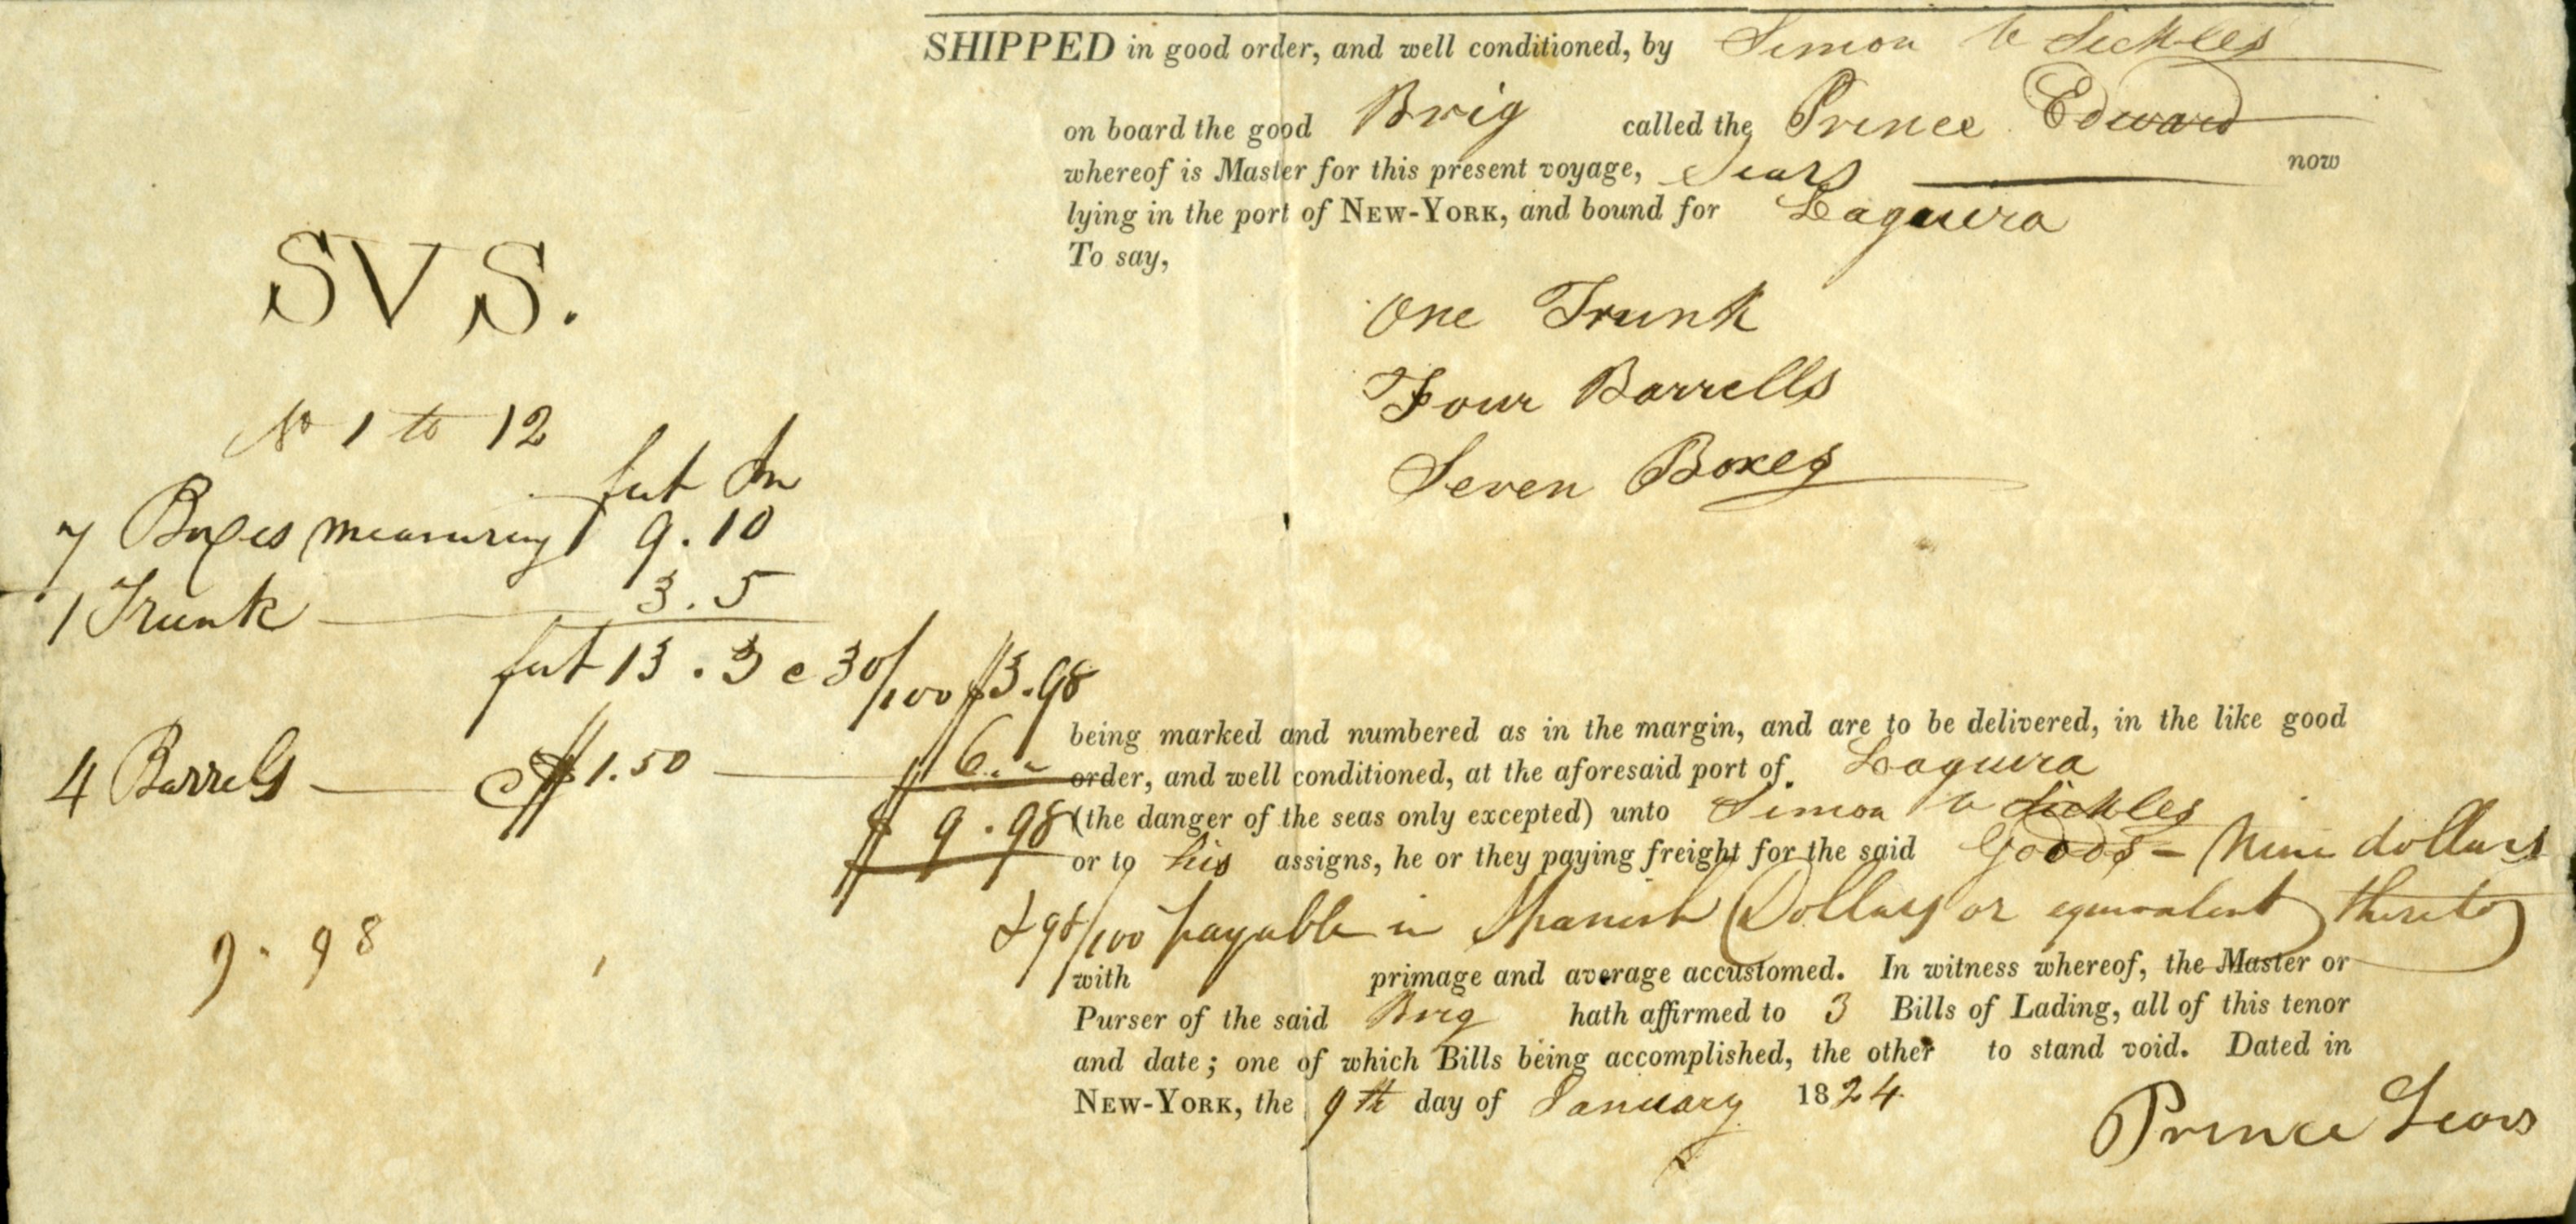 SHIPPED in good order, and well conditioned, by Simon V Sickles
on board the good Brig called the Prince Edward
whereof is Master for this present voyage, Sears now
lying in the port of NEW-YORK, and bound for Laguira
To say,
SVS.
No 1 to 12
One Trunk
Four Barrells
Seven Boxes
feet In
7 Boxes measuring 9.10
1 Trunk 3.5
feet 13.3 @ 30/100 $3.98
4 Barrels @ $1.50 $6.
$9.98
9.98
being marked and numbered as in the margin, and are to be delivered, in the like good
order, and well conditioned, at the aforesaid port of Laguira
(the danger of the seas only excepted) unto Simon V Sickles
or to his assigns, he or they paying freight for the said Goods - Nine dollars
& 98/100 payable in Spanish Dollars or equivalent thereto
with primage and average accustomed. In witness whereof, the Master or
Purser of the said Brig hath affirmed to 3 Bills of Lading, all of this tenor
and date; one of which Bills being accomplished, the other to stand void. Dated in
NEW-YORK, the 9th day of January 1824
Prince Sears